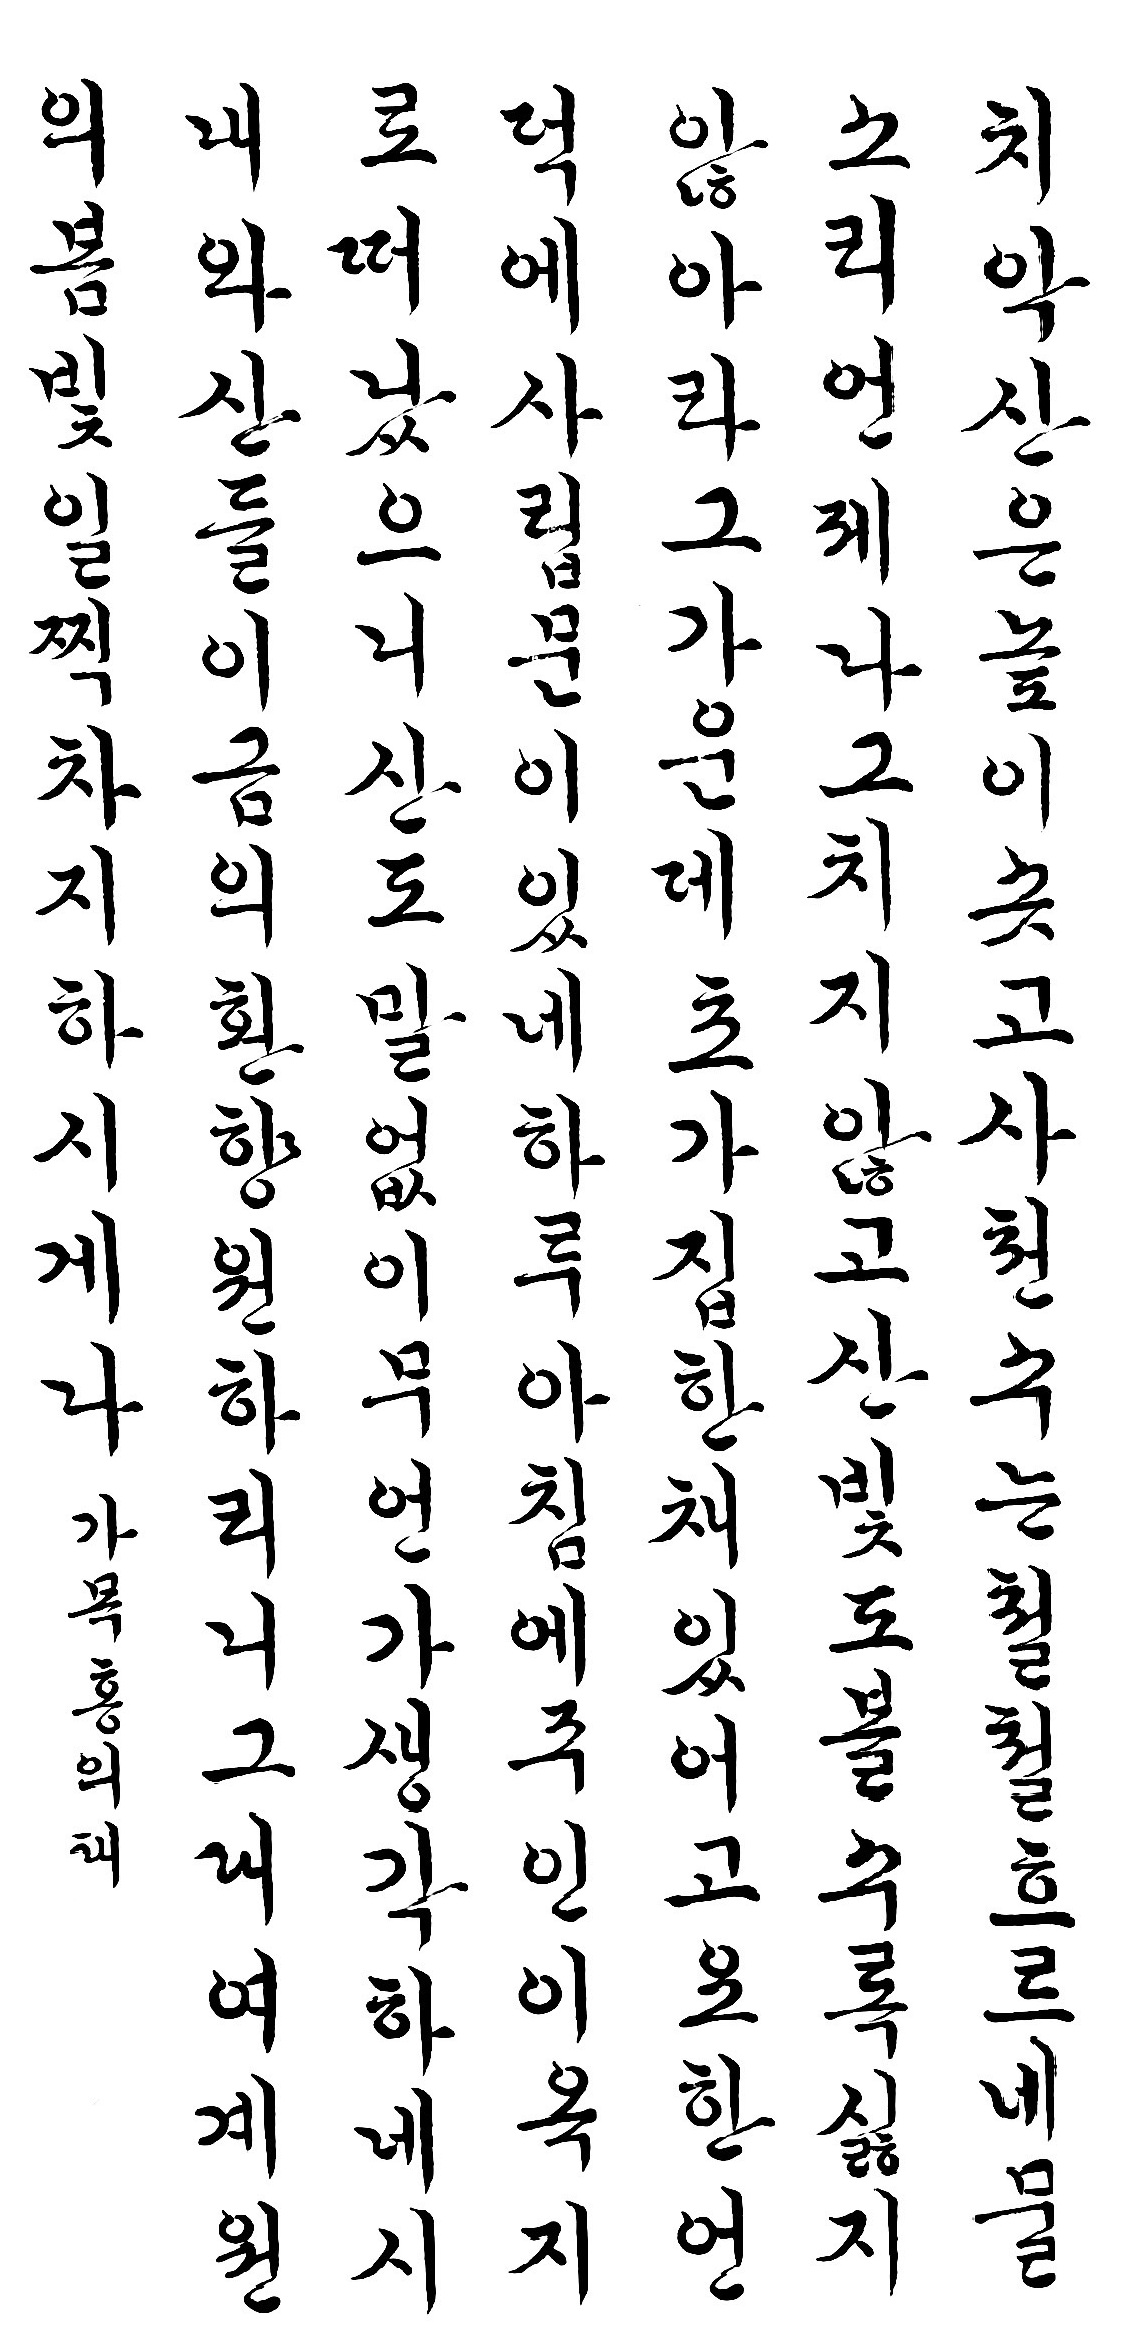 치악산은높이솟고사천수는철철흐르네물
소리언제나그치지않고산빛도볼수록싫지
않아라그가운데초가집한채있어고요한언
덕에사립문이있네하루아침에주인이옥지
로떠났으니산도말없이무언가생각하네시
내와산들이금의환향원하리니그대여계원
의봄빛일찍차지하시게나
가목홍의채